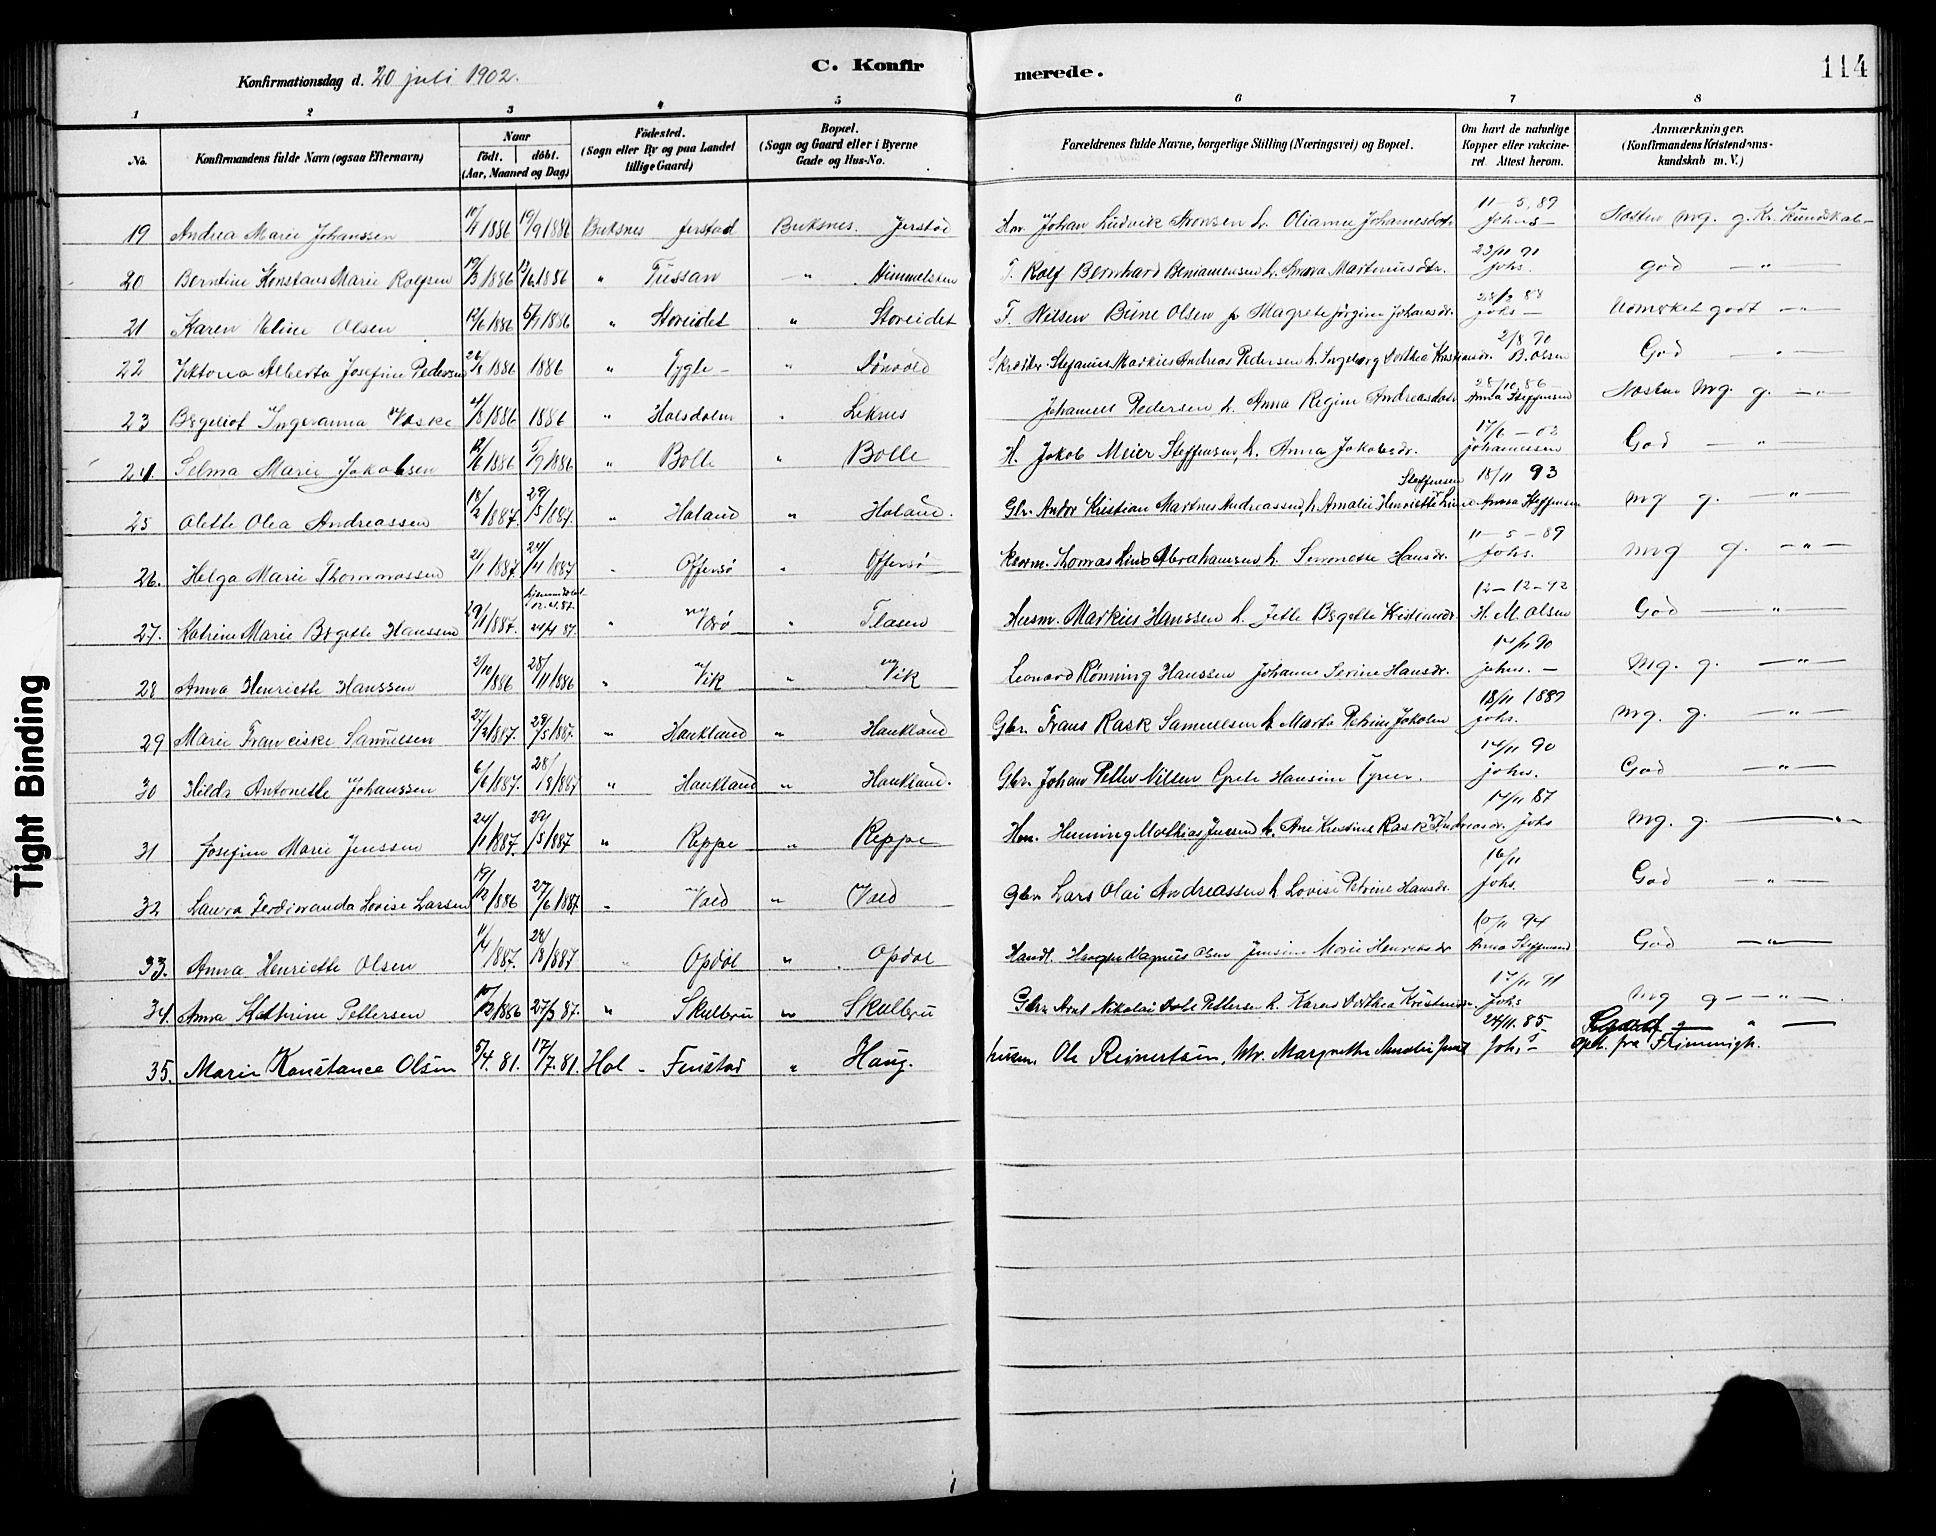 Konfirmationsdag d. 20 juli 1902.
C. Konfir
merede.
114
1 2 3 4 5 6 7 8
No.
Konfirmandens fulde Navn (ogsaa Efternavn)
Naar
födt. döbt.
(Aar, Maaned og Dag)
Födested.
(Sogn eller By og paa Landet tillige Gaard)
Bopæl.
(Sogn og Gaard eller i Byerne Gade og Hus-No.
Forældrenes fulde Navne, borgerlige Stilling (Næringsvei) og Bopæl.
Om havt de naturlige Kopper eller vakcineret. Attest herom.
Anmærkninger.
(Konfirmandens Kristendomskundskab m. V.)
19 Andrea Marie Johanssen 1886 19/9 1886 Buksnes Jerstad Buksnes. Jerstad Johan Ludvik Aronsen h. Oliama Johannesdatr 11-5.89 Johns - Næsten mg. g. Kr. Kundskab -
20 Berntine Konstans Marie Rolfsen 1886 1886 " Tussan - " Himmelsten F. Rolf Bernhard Beniamensen h. Anna Martinusdtr. 23/11 90 Johs. god - " -
21 Karen Eline Olsen 12/6 1886 1886 " Storeidet " Storeidet F. Nilsen Brine Olsen Magrete Jörgine Johansdr. 28/2 88 Johs - Udmerket godt - " -
22 Viktoria Alberta Josefine Pedersen 1886 1886 " Tygle - " Sönvold Stefanus Markus Andreas Pedersen h. Ingeborg Dorthea 2/8 90 B. Olsen God - " -
23 Bergliot Ingevanna Waske 1886 1886 " Holsdalen " Leknes Johannes Pedersen h. Anna Regine Andreasdatr 28/10 86 - Anna Steffensen Næsten mg. g. - " -
24 Selma Marie Jakobsen 1886 1886 " Bolle " Bolle H. Jakob Meier Steffensen, h. Anna Jakobsdr. 17/6 - 02 Johannesen God - " -
25 Olette Olea Andreassen 18/2 1887. 29/5 1887. " Holand " Holand. Gbr. Andor Kristian Martines Andreassen, h. Amalie Henriette Steffensen 18/11 93 Anna Steffensen mg g. - " -
26. Helga Marie Thomassen 21/1 1887. 24/4 1887 " Offersö " Offersö Thomas Lind Abrahamsen h. Simonette Hansdr. 11-5-89 Johs. mg g. - " -
27. Katrine Marie Bergette Hanssen 29/1 1887. hjemmedöbt 24/4 87. " Vorö " Flasen Husm. Markus Hanssen h. Jette Bergette Kristiansdr. 12-12-92 H. M. Olsen God - " -
28 Anna Henriette Hanssen 2/10 1886 28/11 1886 " Vik " Vik Leonard Rönning Hanssen Johanne Serine Hansdr. 14/11 90 Johns. - mg. g. - " -
29 Marie Franciske Samuelsen 27/2 1887. 29/5 1887. " Haukland " Haukland Gbr. Frans Rask Samuelsen h. Marta Petrine Jakobsen 18/11 1889 Johs. mg. g. - " -
30 Hilda Antonette Johanssen 6/6 1887. 28/8 1887 " Haukland " Haukland. Gbr. Johan Petter Nilsen Grete Hansine 14/11 90 Johns. God - " -
31 Josefine Marie Jenssen 24/1 1887. 29/5 1887 " Reppe " Reppe Henning Mathias Jenssen h. Ane Kristine Rask Andreasdr. 14/11 87 Johs mg. g. - " -
32 Laura Ferdinanda Lovise Larsen 19/12 1886 27/6 1887 " Vold " Vold Gbr. Lars Olai Andreassen h. Lovise Petrine Hansdr. 16/11 Johs. God - " -
33. Anna Henriette Olsen 11/4 1887. 28/8 1887 " Opdöl " Opdöl Handl. Magnus Olsen Jensine Marie Henriksdr 10/11 94 Anna Steffensen God - " -
34. Anna Kathrine Pettersen 1886 27/3 87. " Skulbru " Skulbru Gbr. Arnt Nikolai Dole Pettersen h. Karen Dorthea Kristensdr. 17/11 91 Johs mg g - " -.
35. Marie Konstance Olsen 5/4. 81. 17/7. 81. Hol - Finstad " Haug. Ole Reinertsen, Margrethe Amalie 24/11. 85. Joh, - God " - opt. fra Frimenigh.
Tight Binding